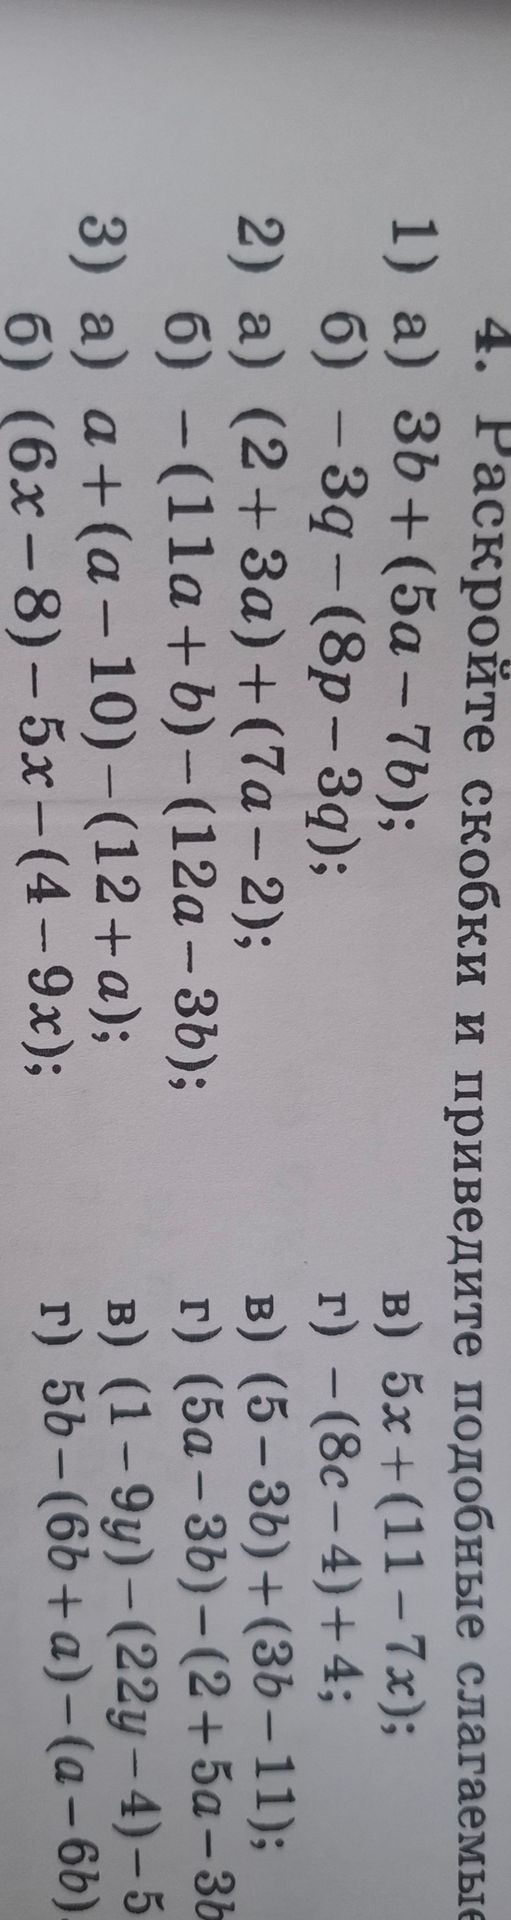 4. Раскройте скобки и приведите подобные слагаемые
1) а) 3b + (5a – 7b); в) 5x + (11 – 7x);
б) – 3q – (8p – 3q); г) –(8c – 4) + 4;
2) а) (2 + 3a) + (7a – 2); в) (5 – 3b) + (3b – 11);
б) –(11a + b) – (12a – 3b); г) (5a – 3b) – (2 + 5a – 3b
3) а) a + (a – 10) – (12 + a); в) (1 – 9y) – (22y – 4) – 5
б) (6x – 8) – 5x – (4 – 9x); г) 5b – (6b + a) – (a – 6b).